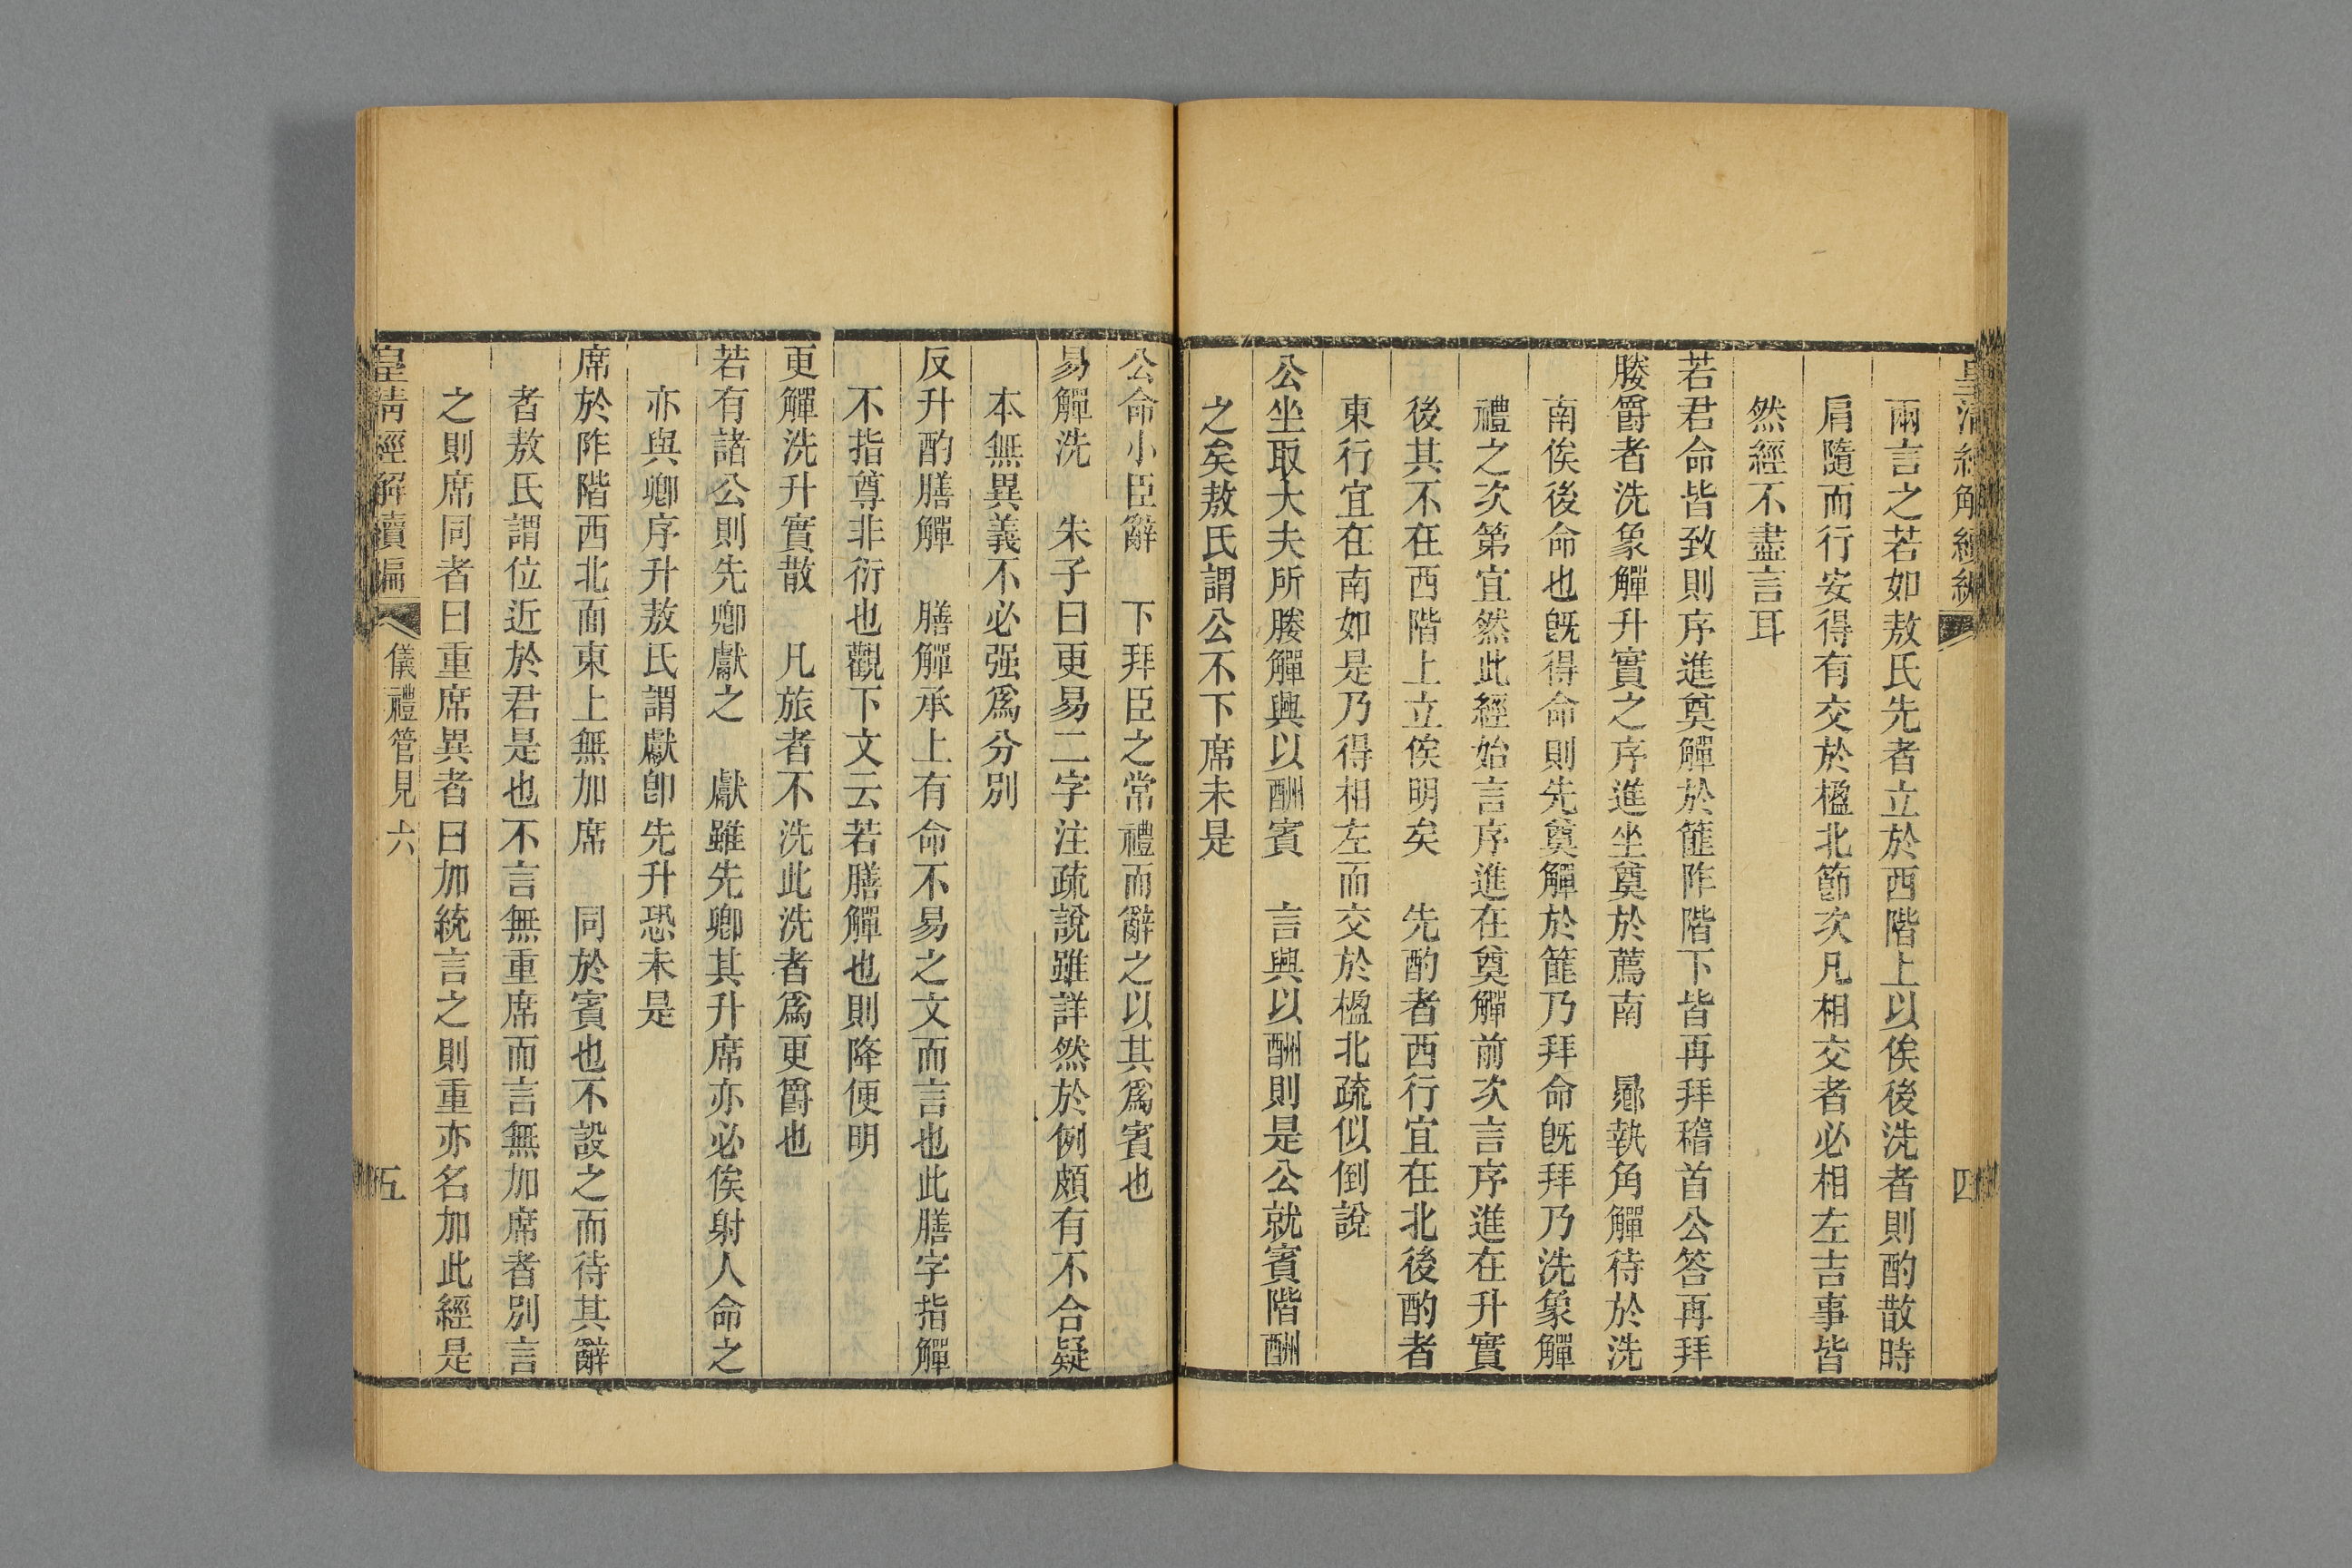 皇清經解續編 四
兩言之若如敖氏先者立於西階上以俟後洗者則酌散時
肩隨而行安得有交於楹北節次凡相交者必相左吉事皆
然經不盡言耳
若君命皆致則序進奠觶於篚阼階下皆再拜稽首公答再拜
媵爵者洗象觶升實之序進坐奠於薦南　曏執角觶待於洗
南俟後命也旣得命則先奠觶於篚乃拜命旣拜乃洗象觶
禮之次第宜然此經始言序進在奠觶前次言序進在升實
後其不在西階上立俟明矣　先酌者西行宜在北後酌者
東行宜在南如是乃得相左而交於楹北疏似倒說
公坐取大夫所媵觶興以酬賓　言興以酬則是公就賓階酬
之矣敖氏謂公不下席未是
公命小臣辭　下拜臣之常禮而辭之以其爲賓也
易觶洗　朱子曰更易二字注疏說雖詳然於例頗有不合疑
本無異義不必强爲分別
反升酌膳觶　膳觶承上有命不易之文而言也此膳字指觶
不指尊非衍也觀下文云若膳觶也則降便明
更觶洗升實散　凡旅者不洗此洗者爲更爵也
若有諸公則先卿獻之　獻雖先卿其升席亦必俟射人命之
亦與卿序升敖氏謂獻卽先升恐未是
席於阼階西北面東上無加席　同於賓也不設之而待其辭
者敖氏謂位近於君是也不言無重席而言無加席者別言
之則席同者曰重席異者曰加統言之則重亦名加此經是
皇清經解續編 儀禮管見六 五